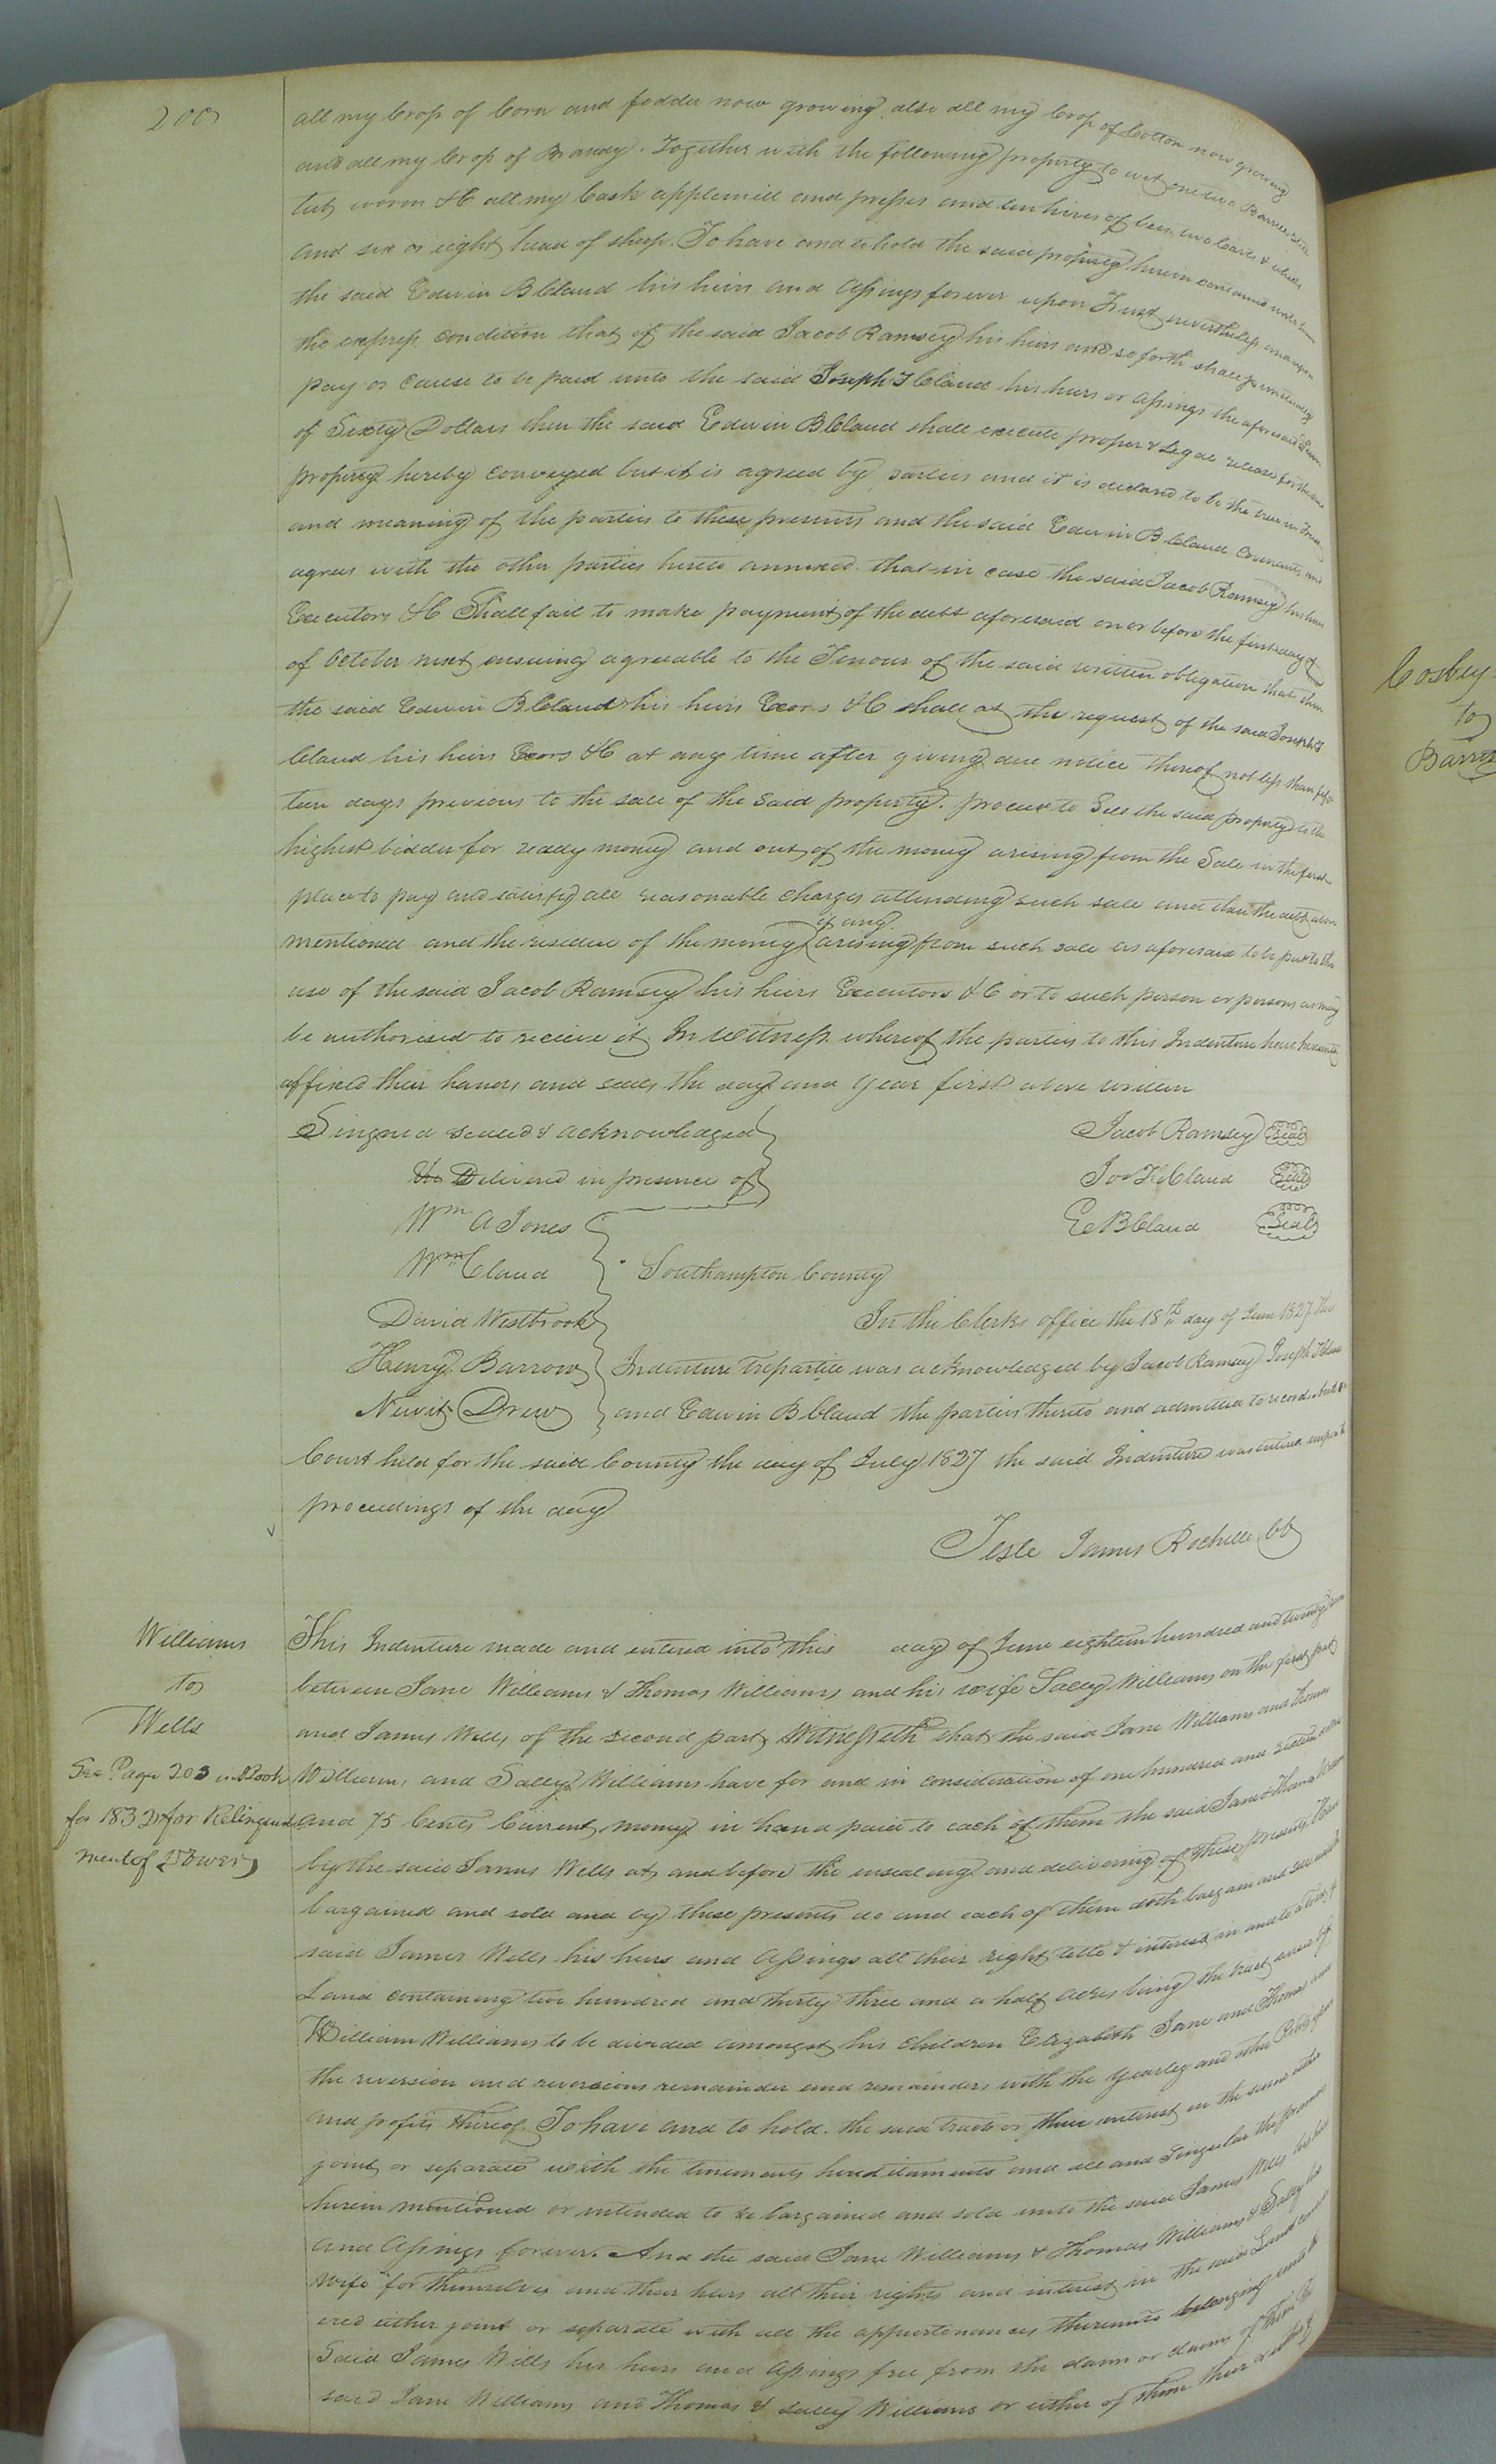 200
all my Crop of Corn and fodder now growing also all my Crop of Cotton now growing
and all my Crop of Brandy. Together with the following property to wit one two Barrel Still
tub worm &C all my Cask applemill and presses and ten hives of bees, two Cares & wheels
and six or eight head of sheep. To have and to hold the said property herein conveyed unto him
the said Edwin B Claud his heirs and Assings forever upon Trust nevertheless and upon
the express condition that if the said Jacob Ramsey his heirs and so forth shall punctually
pay or cause to be paid unto the said Joseph T Claud his heirs or Assings the aforesaid Sum
of Sixty Dollars then the said Edwin B Claud shall execute proper & Legal release for the same
property hereby conveyed but it is agreed by parties and it is declared to be the true intent
and meaning of the parties to these presents and the said Edwin B Claud Covenants and
agrees with the other parties hereto annexed that in case the said Jacob Ramsey his heirs
Executors &C Shall fail to make payment of the debt aforesaid on or before the first day of
of October next ensuing agreeable to the Tenour of the said written obligation that then
the said Edwin B Claud his heirs Exors &C shall at the request of the said Joseph T
Claud his heirs Exors &C at any time after giving due notice thereof not less than fif
teen days previous to the sale of the said property. proceed to Sell the said property to the
highest bidder for ready money and out of the money arising from the Sale in the first
place to pay and satisfy all reasonable charges attending such sale and then the debt above
if any
mentioned and the residue of the money arising from such sale as aforesaid to be put to the
use of the said Jacob Ramsey his heirs Executors &C or to such person or persons as may
be authorised to recieve it. In Witness whereof the parties to this Indenture have hereunto
affixed their hands and seals the day and year first above written
Singned sealed & acknowledged
Delivered in presence of
Jacob Ramsey Seal
Jos T Claud Seal
E B Claud Seal
Wm A Jones
Wm Claud
David Westbrook
Henry Barrow
Newit Drew
Southampton County
In the Clerks office the 18th day of June 1827 This
Indenture trepartite was acknowledged by Jacob Ramsey Joseph T Claud
and Edwin B Claud the parties thereto and admitted to record And at a
Court held for the said County the day of July 1827 the said Indenture was entered upon the
proceedings of the day
Teste James Rochelle CC
Williams
to
Wells
See Page 203 in Book
for 1832 for Relinquish
ment of Dower
This Indenture made and entered into this day of June eighteen hundred and twenty seven
between Jane Williams & Thomas Williams and his wife Sally Williams on the first part
and James Wells of the second part Witnesseth that the said Jane Williams and Thomas
Williams, and Sally Williams have for and in consideration of one hundred and sixteen dollars
and 75 Cents Current money in hand paid to each of them the said Jane & Thomas Williams
by the said James Wells at and before the ensealing and delivering of these presents, have
bargained and sold and by these presents do and each of them doth bargain and sell unto the
said James Wells his heirs and Assings all their right title & interest in and to a tract of
Land containing two hundred and thirty three and a half acres being the tract
William Williams to be divided amongst his children Elizabeth Jane and Thomas and
the reversion and reversions remainder and remainders with the yearly and other Rents
and profits thereof. To have and to hold. the said tract or their interest in the same either
joint or separate with the tenements hereditaments and all and Singular the premises
herein mentioned or intended to be bargained and sold unto the said James Wells his heirs
and Assings forever. And the said Jane Williams & Thomas Williams & Sally his
wife for themselves and their heirs all their rights and interest in the said Land
ered either joint or separate with all the appurtenances thereunto belonging unto the
Said James Wells his heirs and Assings free from the claim or claims of them the
said Jane Williams and Thomas & Sally Williams or either of them their
Cosby
to